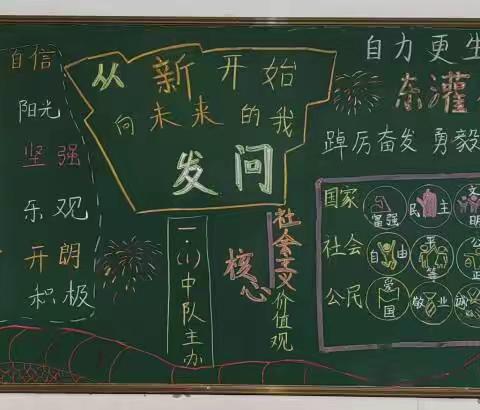 自信
阳光
坚强
乐观
开朗
积极
从新开始
向未来的我
发问
一·(1)中队主办
社会主义
核心
价值观
自力更生
东灌
踔厉奋发 勇毅
国家
富强
民主
文明
社会
自由
平等
公正
公民
爱国
敬业
诚